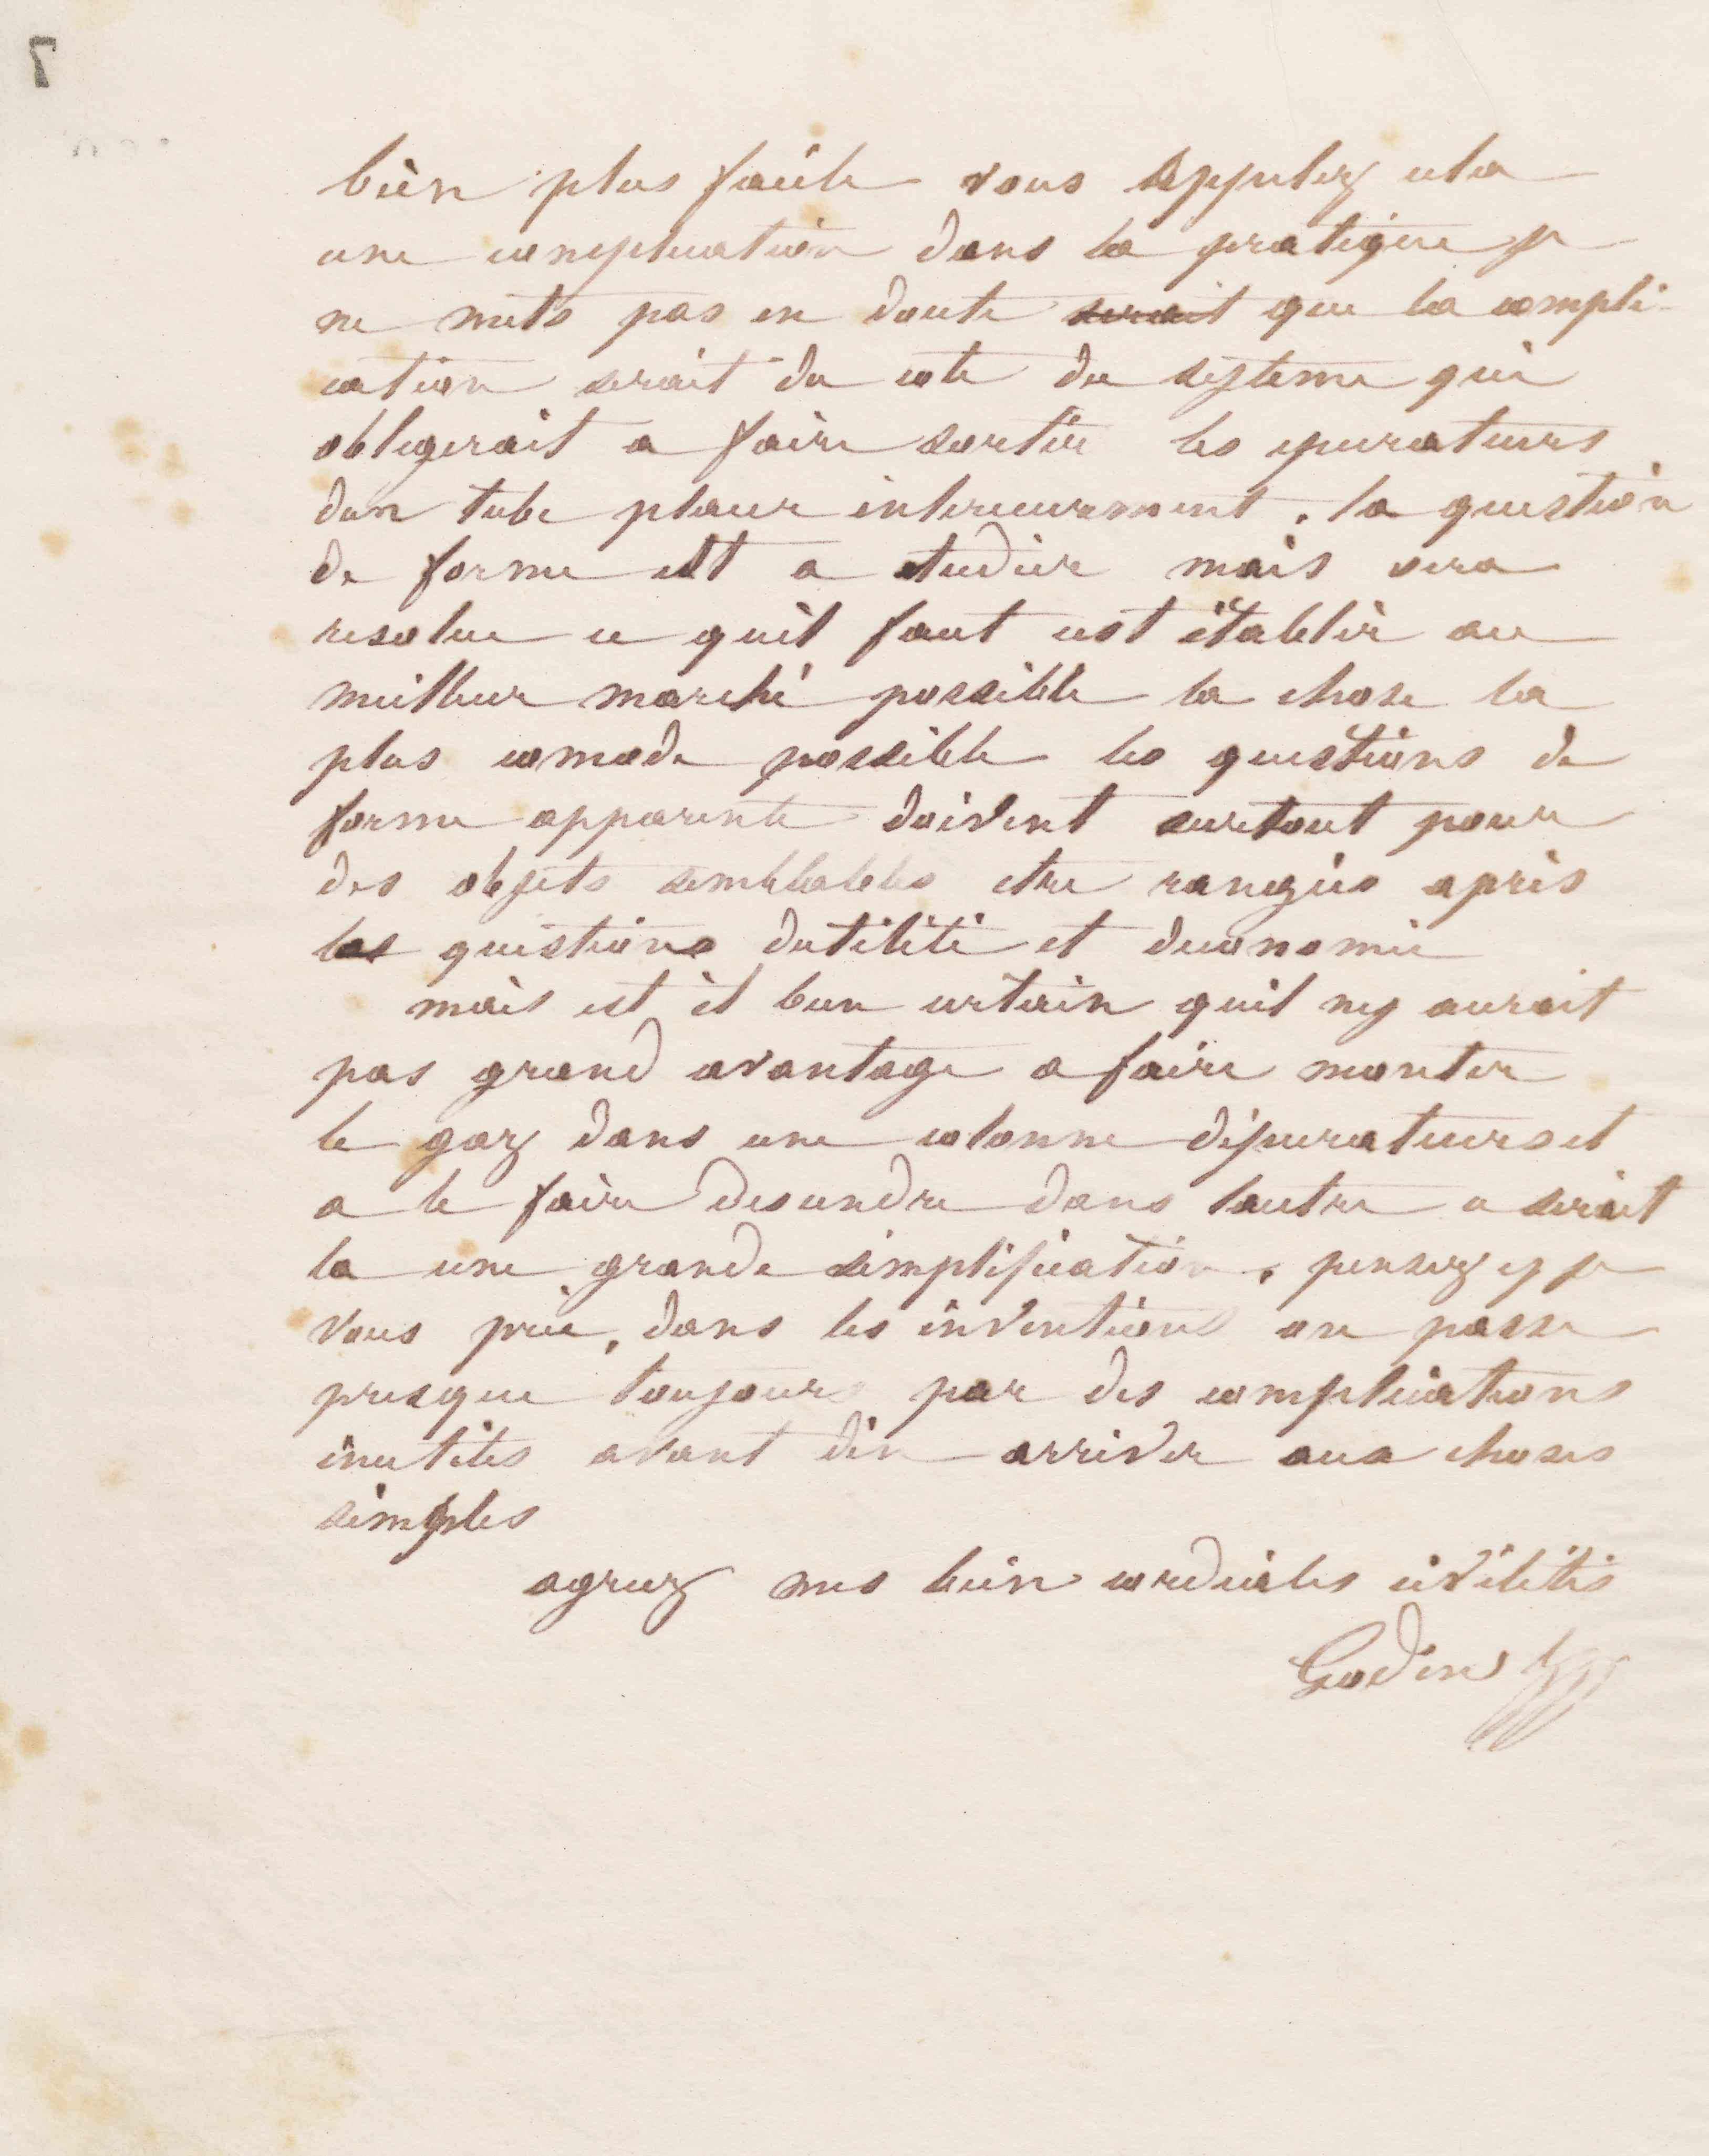 7
bien plus facile vous appelez cela
une complication dans la pratique je
ne mets pas en doute serait que la compli-
cation serait du cote du systeme qui
obligerait a faire sortir les epurateurs
dun tube place interieurement. la question
de forme est a etudier mais sera
resolue ce quil faut cest établir au
meilleur marché possible la chose la
plus comode possible les questions de
forme apparente doivent surtout pour
des objets semblables etre rangées après
les questions dutilité et deconomie
mais est il bien certain quil ny aurait
pas grand avantage a faire monter
le gaz dans une colonne dépurateurs et
a le faire descendre dans lautre ce serait
la une grande simplification. pensez y je
vous prie, dans les inventions on passe
presque toujours par des complications
inutiles avant den arriver aux choses
simples
agreez mes bien cordiales civilités
Godin